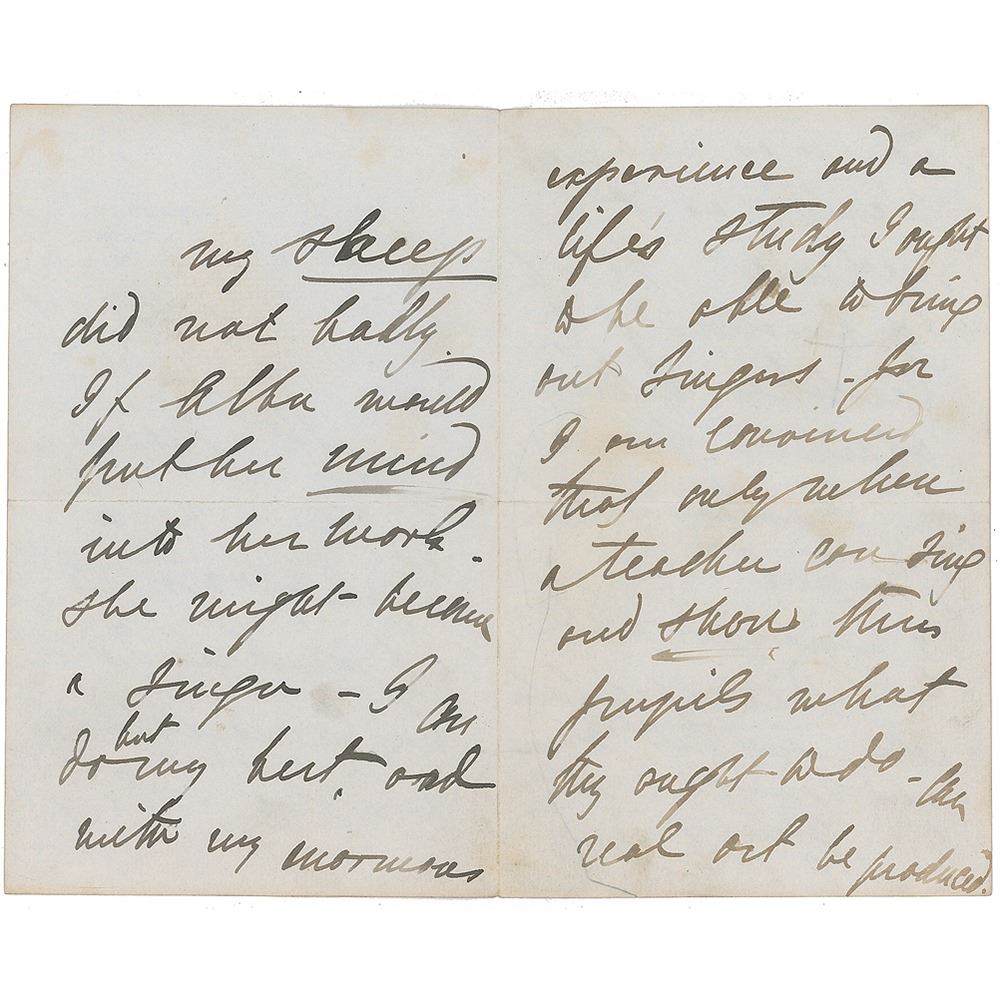 my sheep
did not badly.
If Alba would
put her mind
into her work -
she might - become
a singer - I can
do but my best and
with my enormous
experience and a
life's study I ought
to be able to bring
out singers - for
I am convinced
that only when
a teacher can sing
and show their
pupils what
they ought to do - can
real art be produced.